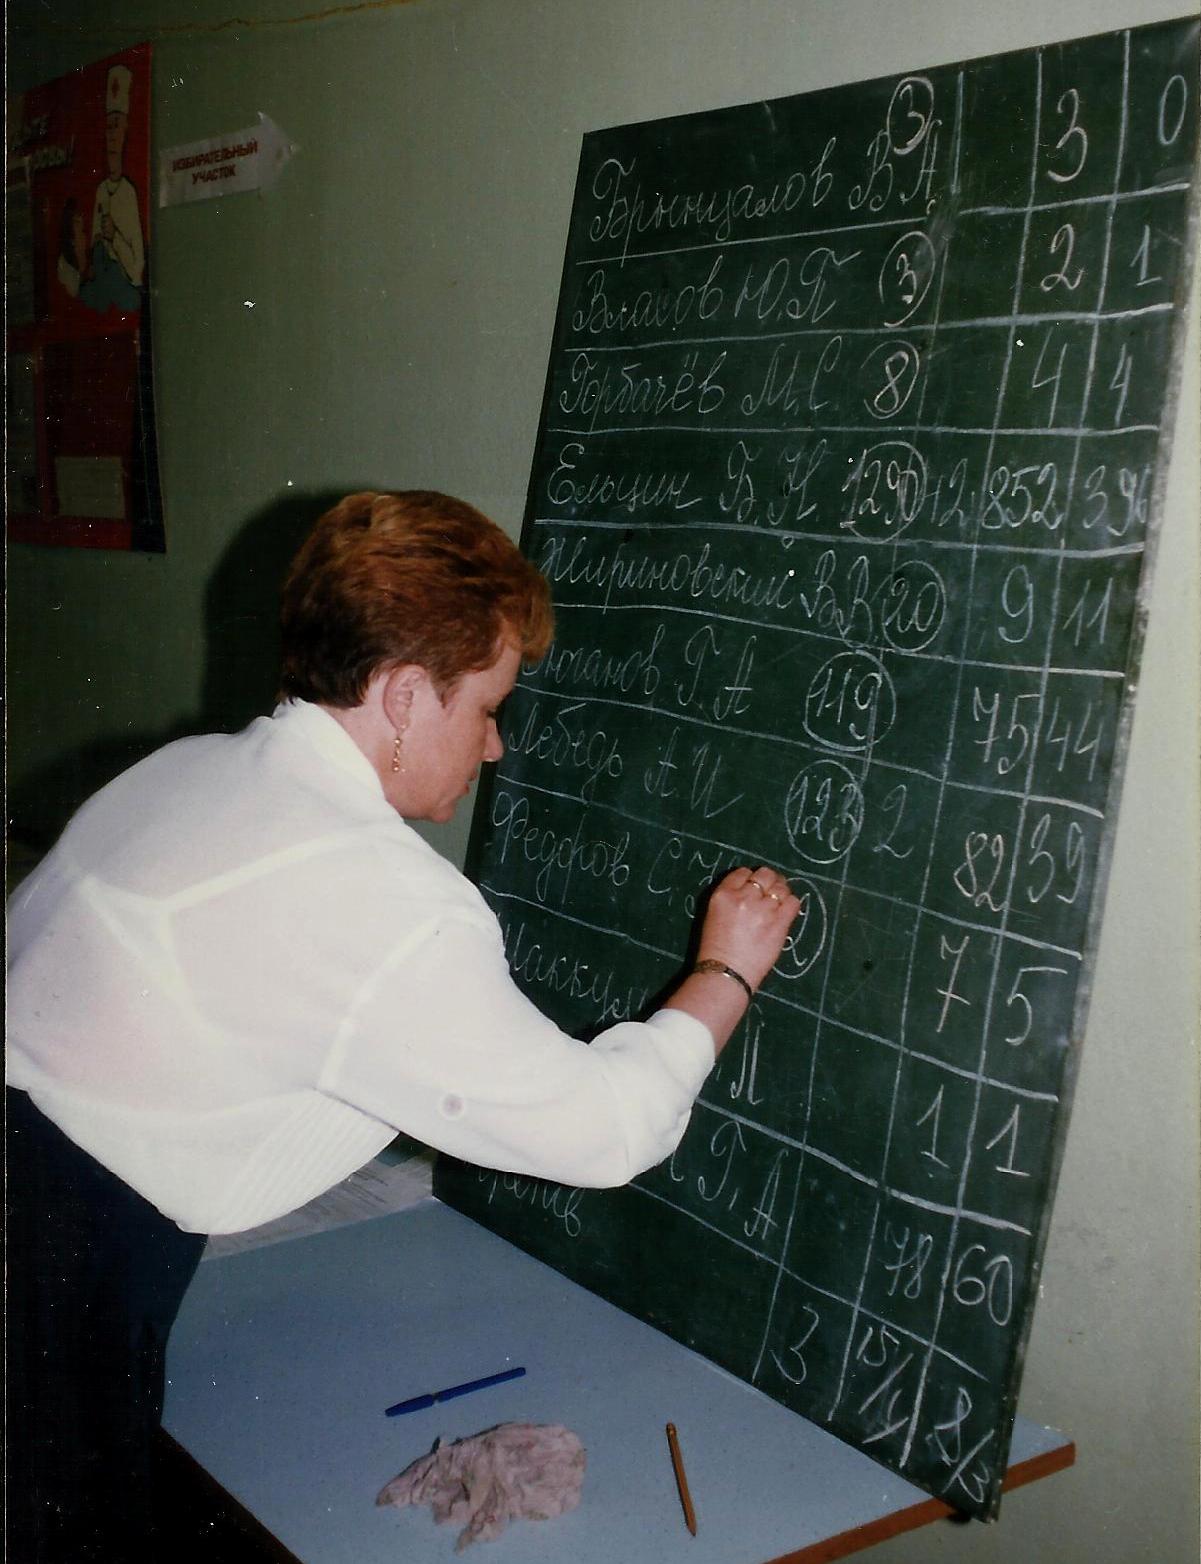 ИЗБИРАТЕЛЬНЫЙ
УЧАСТОК
Брынцалов В А. 3 3 0
Власов Ю.П 3 2 1
Горбачёв М.С. 8 4 4
Ельцин Б.Н. +2 852
Жириновский В.В. 20 9 11
Г.А 119 75 44
Лебедь А.И 123 2 82 39
Фёдоров С. 7 5
П 1 1
Г.А 78 60
3 15/